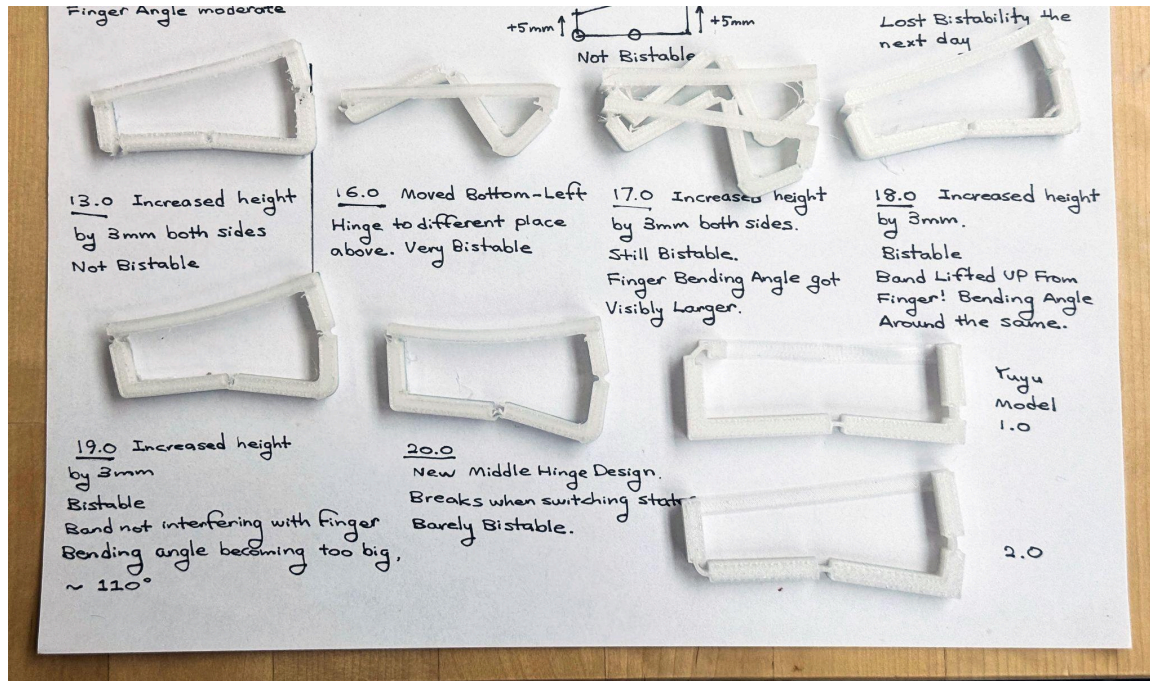 Finger Angle moderate
+5mm
+5mm
Not Bistable
Lost Bistability the
next day
13.0 Increased height
by 3mm both sides
Not Bistable
16.0 Moved Bottom-Left
Hinge to different place
above. Very Bistable
17.0 Increased height
by 3mm both sides.
Still Bistable.
Finger Bending Angle got
Visibly Larger.
18.0 Increased height
by 3mm.
Bistable
Band Lifted UP From
Finger! Bending Angle
Around the same.
19.0 Increased height
by 3mm
Bistable
Band not interfering with Finger
Bending angle becoming too big,
~ 110°
20.0
New Middle Hinge Design.
Breaks when switching state
Barely Bistable.
Yuyu
Model
1.0
2.0